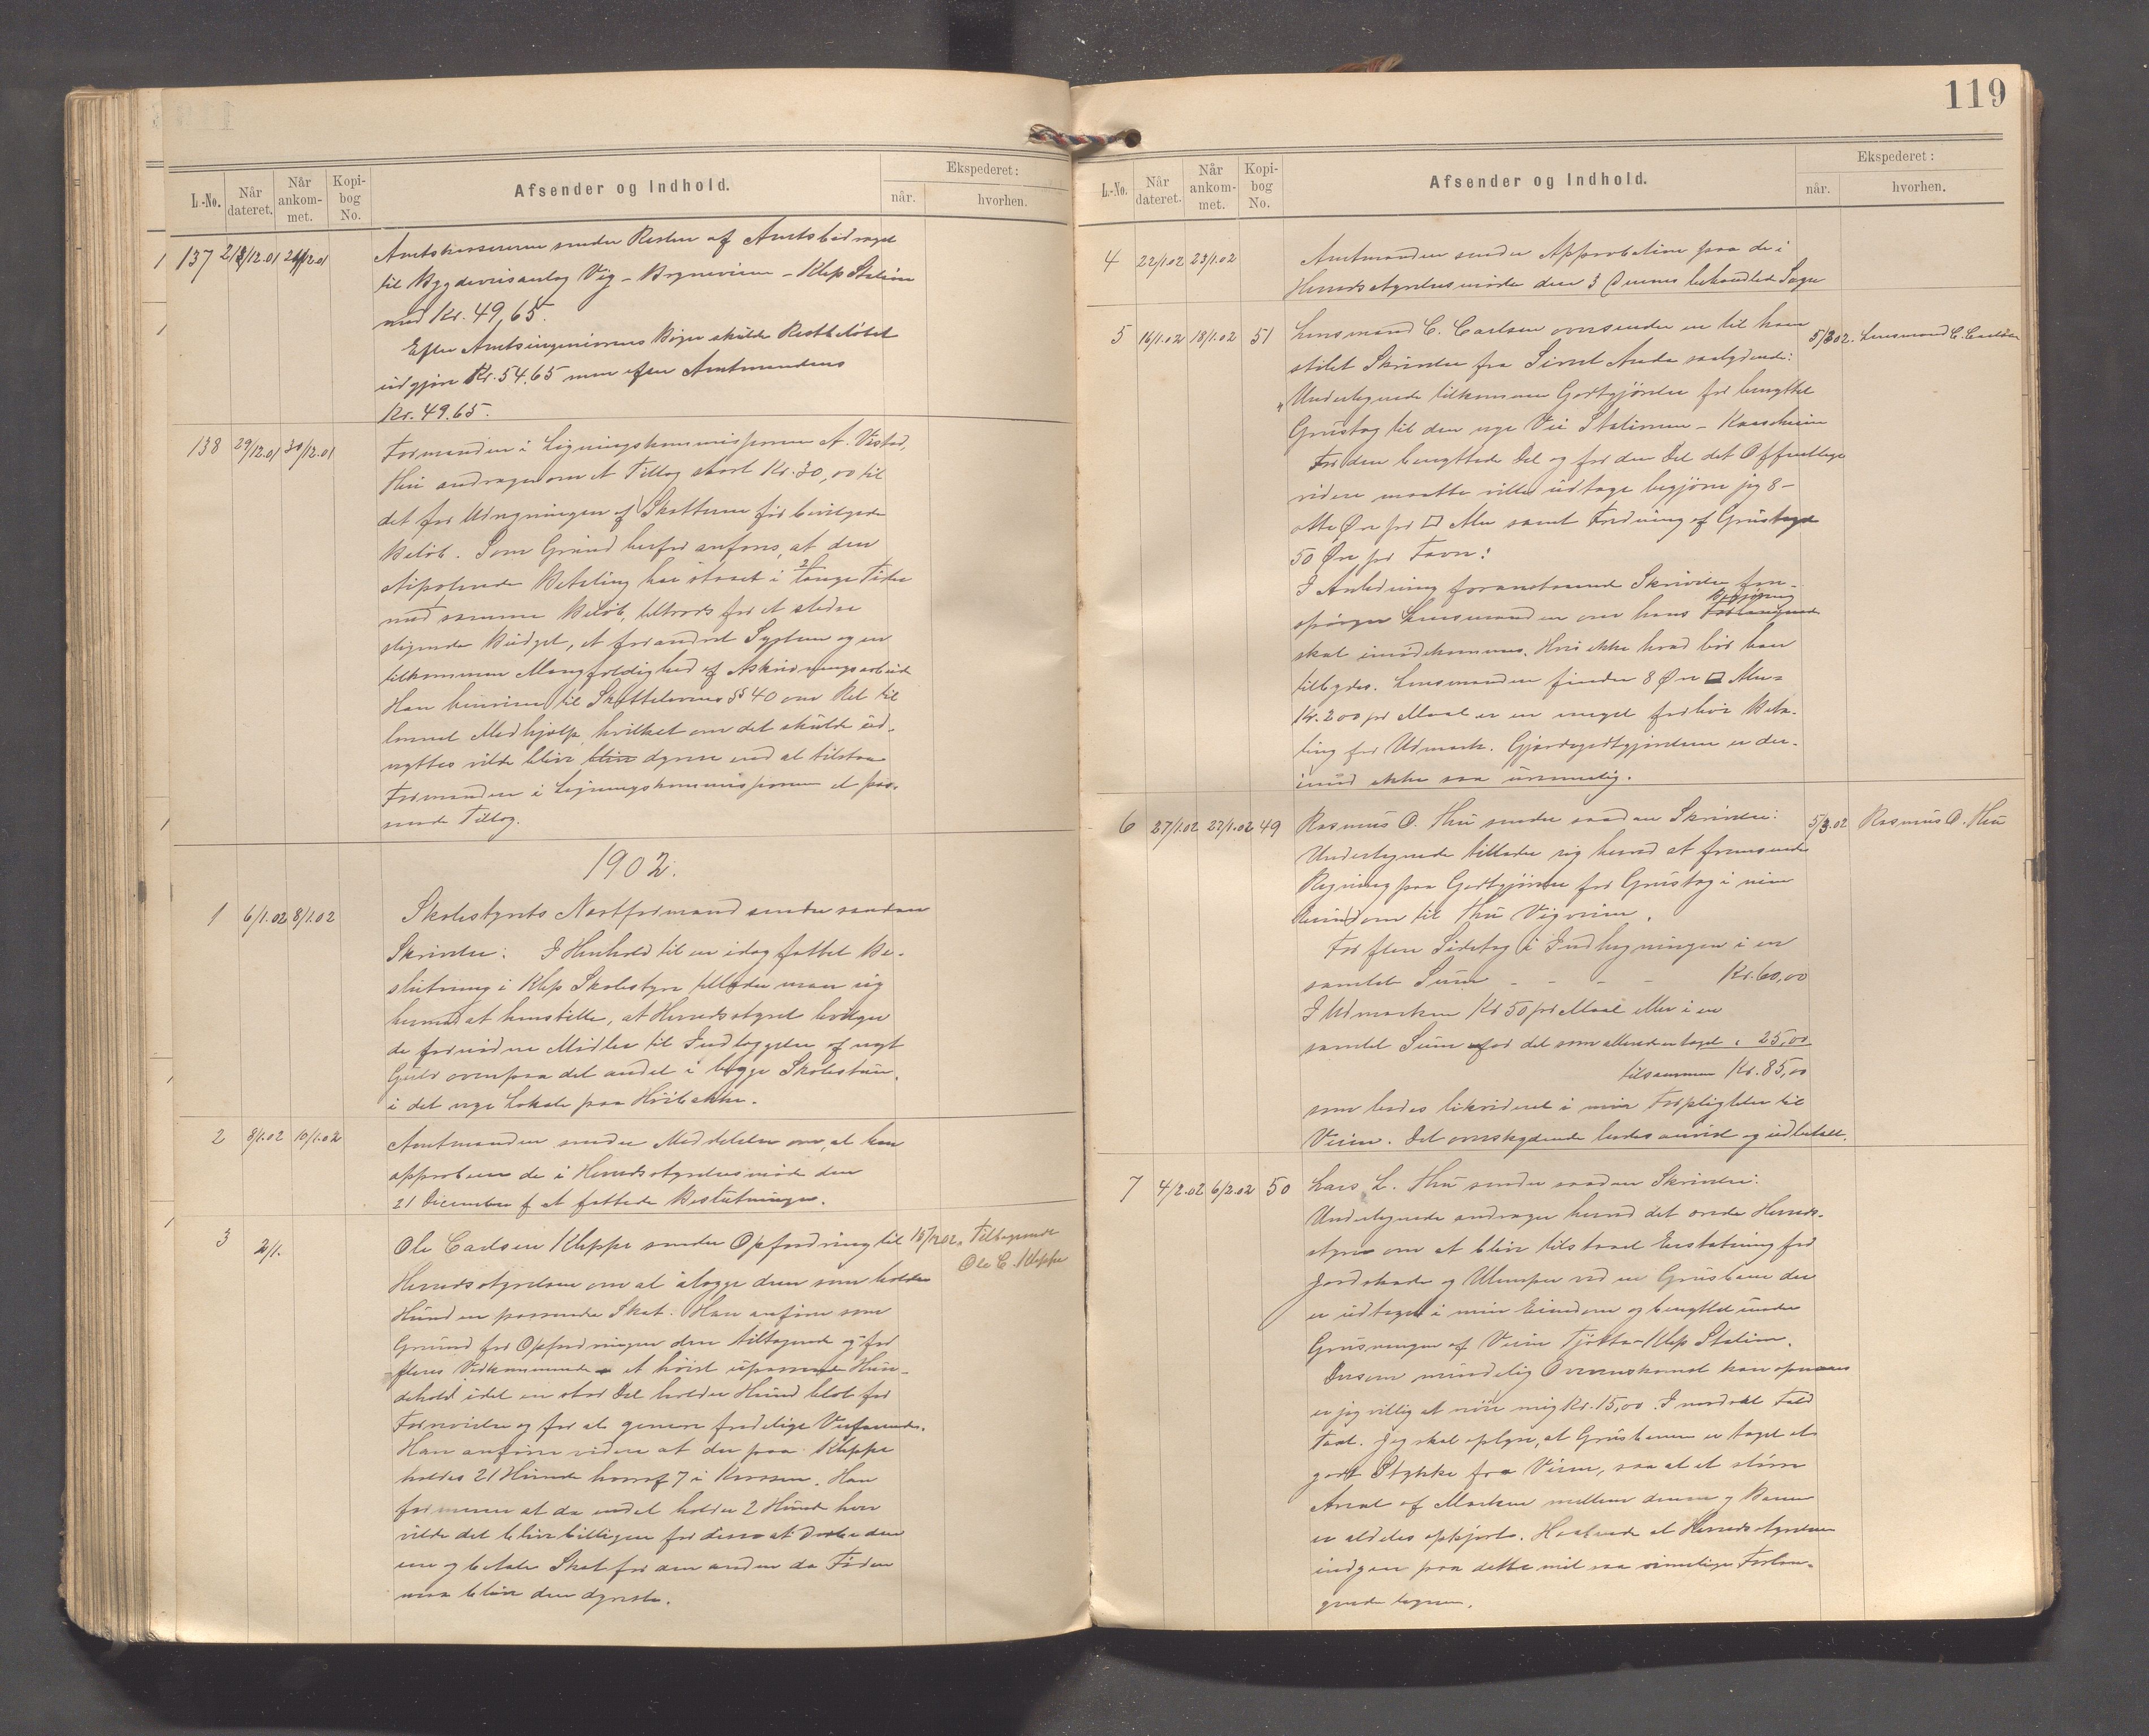 L.-No.
Når dateret.
Når ankommet.
Kopibog No.
Afsender og Indhold.
Ekspederet:
når.
hvorhen.
137 /12.01 /12.01 Amtskassereren sender Resten af Amtsbidraget
til Bygdeveisanlæg Vig - Bryneveien - Klep Station
med Kr. 49,65.
Efter Amtsingeniørens Bøger skulde Restbeløbet
udgjøre Kr. 54,65 men efter Amtmandens
Kr. 49.65.
138 29/12.01 30/12.01 Formanden i Ligningskommissionen A. Vestad,
Hu andrager om et Tillæg stort Kr. 30,00 til
det for Udregningen af Skatterne før bevilgede
Beløb. Som Grund herfor anføres, at den
Betaling har staaet i 2 lange Tider
med samme Beløb, tiltrods for et stedse
stigende Budget, et forandret System og en
tilkommen Mangfoldighed af Afskrivningsarbeide
Han henviser til Skattelovens § 40 om Ret til
lønnet Medhjælp hvilket om det skulde ud-
nyttes vilde blive blive dyrere end at tilstaa
Formanden i Ligningskommissionen et pas-
sende Tillæg.
1902.
1 6/1.02 8/1.02 Skolestyrets Næstformand sender saadan
Skrivelse: I Henhold til en idag fattet Be-
slutning i Klep Skolestyre tillader man sig
herved at henstille, at Herredsstyret bevilger
de fornødne Midler til Indlæggelse af nyt
Gulv ovenpaa det andet i begge Skolestuer
i det nye Lokale paa
2 8/1.02 10/1.02 Amtmanden sender Meddelelse om, at han
approberer de i Herredsstyrelsesmøde den
21 December f. a. fattede Beslutninger.
3 2/1. Ole Carlsen Kleppe sender Opfordring til
Herredsstyrelsen om at ilægge dem som holder
Hund en passende Skat. Han anfører som
Grund for Opfordringen den tiltagende og for
fleres Vedkommende et høist upassende Hun-
dehold idet en stor Del holder Hund blot for
Fornøielse og for at genere fredelige Veifarende.
Han anfører videre at der paa Kleppe
holdes 21 Hunde hvoraf 7 i Krossen. Han
formener at da endel holder 2 Hunde hver
vilde det blive billigere for disse at dræbe den
ene og betale Skat for den anden da Føden
maa blive den dyreste.
Tilbagesendt
Ole C. Kleppe
119
L.-No.
Når dateret.
Når ankommet.
Kopibog No.
Afsender og Indhold.
Ekspederet:
når.
hvorhen.
4 22/1.02 23/1.02 Amtmanden sender Approbation paa de i
Herredsstyrelsesmøde den 3 dennes behandlede Sager
5 16/1.02 18/1.02 51 Lensmand C. Carlsen oversender en til ham 5/3 02. Lensmand C. Carlsen
stilet Skrivelse fra Sivert Anda saalydende:
"Undertegnede tilkommer Godtgjørelse for benyttet
Grustag til den nye Vei Stationen - Kaasheim
For den benyttede Del og for den Del det Offentlige
videre maatte ville udtage begjærer jeg 8-
otte Øre pr □ Alen samt Fredning af Grustaget
50 Øre pr Favn:
I Anledning foranstaaende Skrivelse fore-
spørger Lensmanden om hans Forlangende Begjæring
skal imødekommes. Hvis ikke hvad bør han
tilbydes. Lensmanden finder 8 Øre □ Alen =
Kr. 200 pr Maal er en meget for høi Beta-
ling for Udmark. Gjærdegodtgjørelsen er der-
imod ikke saa urimelig.
6 27/1.02 27/1.02 49 Rasmus O. Hu sender saadan Skrivelse: 5/3.02 Rasmus O. Hu
Undertegnede tillader sig herved at fremsende
Regning paa Godtgjørelse for Grustag i min
Eiendom til Hu Vigveien.
For flere Sidetag i Indhegningen i en
samlet Sum - - - - Kr. 60,00
I Udmarken Kr 50 pr Maal eller i en
samlet Sum for det som allerede er taget " 25,00
tilsammen Kr. 85,00
som bedes likvideret i min Forpligtelse til
Veien. Det overskydende bedes anvist og udbetalt.
7 4/2.02 6/2.02 50 Lars L. Hu sender saadan Skrivelse:
Undertegnede andrager herved det ærede Herreds-
styre om at blive tilstaaet Erstatning for
Jordskade og Ulemper ved en Grusbane der
er udtaget i min Eiendom og benyttet under
Grusningen af Veien Tjøtta-Klep Station.
Dersom mindelig Overenskomst kan opnaaes
er jeg villig at nøie mig Kr. 15,00. I modsat Fald
Taxt. Jeg skal oplyse, at Grusbanen er taget et
godt Stykke fra Veien, saa at et større
Areal af Marken mellem denne og Banen
er aldeles opkjørt. Haabende at Herredsstyrelsen
indgaar paa dette mit saa rimelige Forlan-
gende tegner.